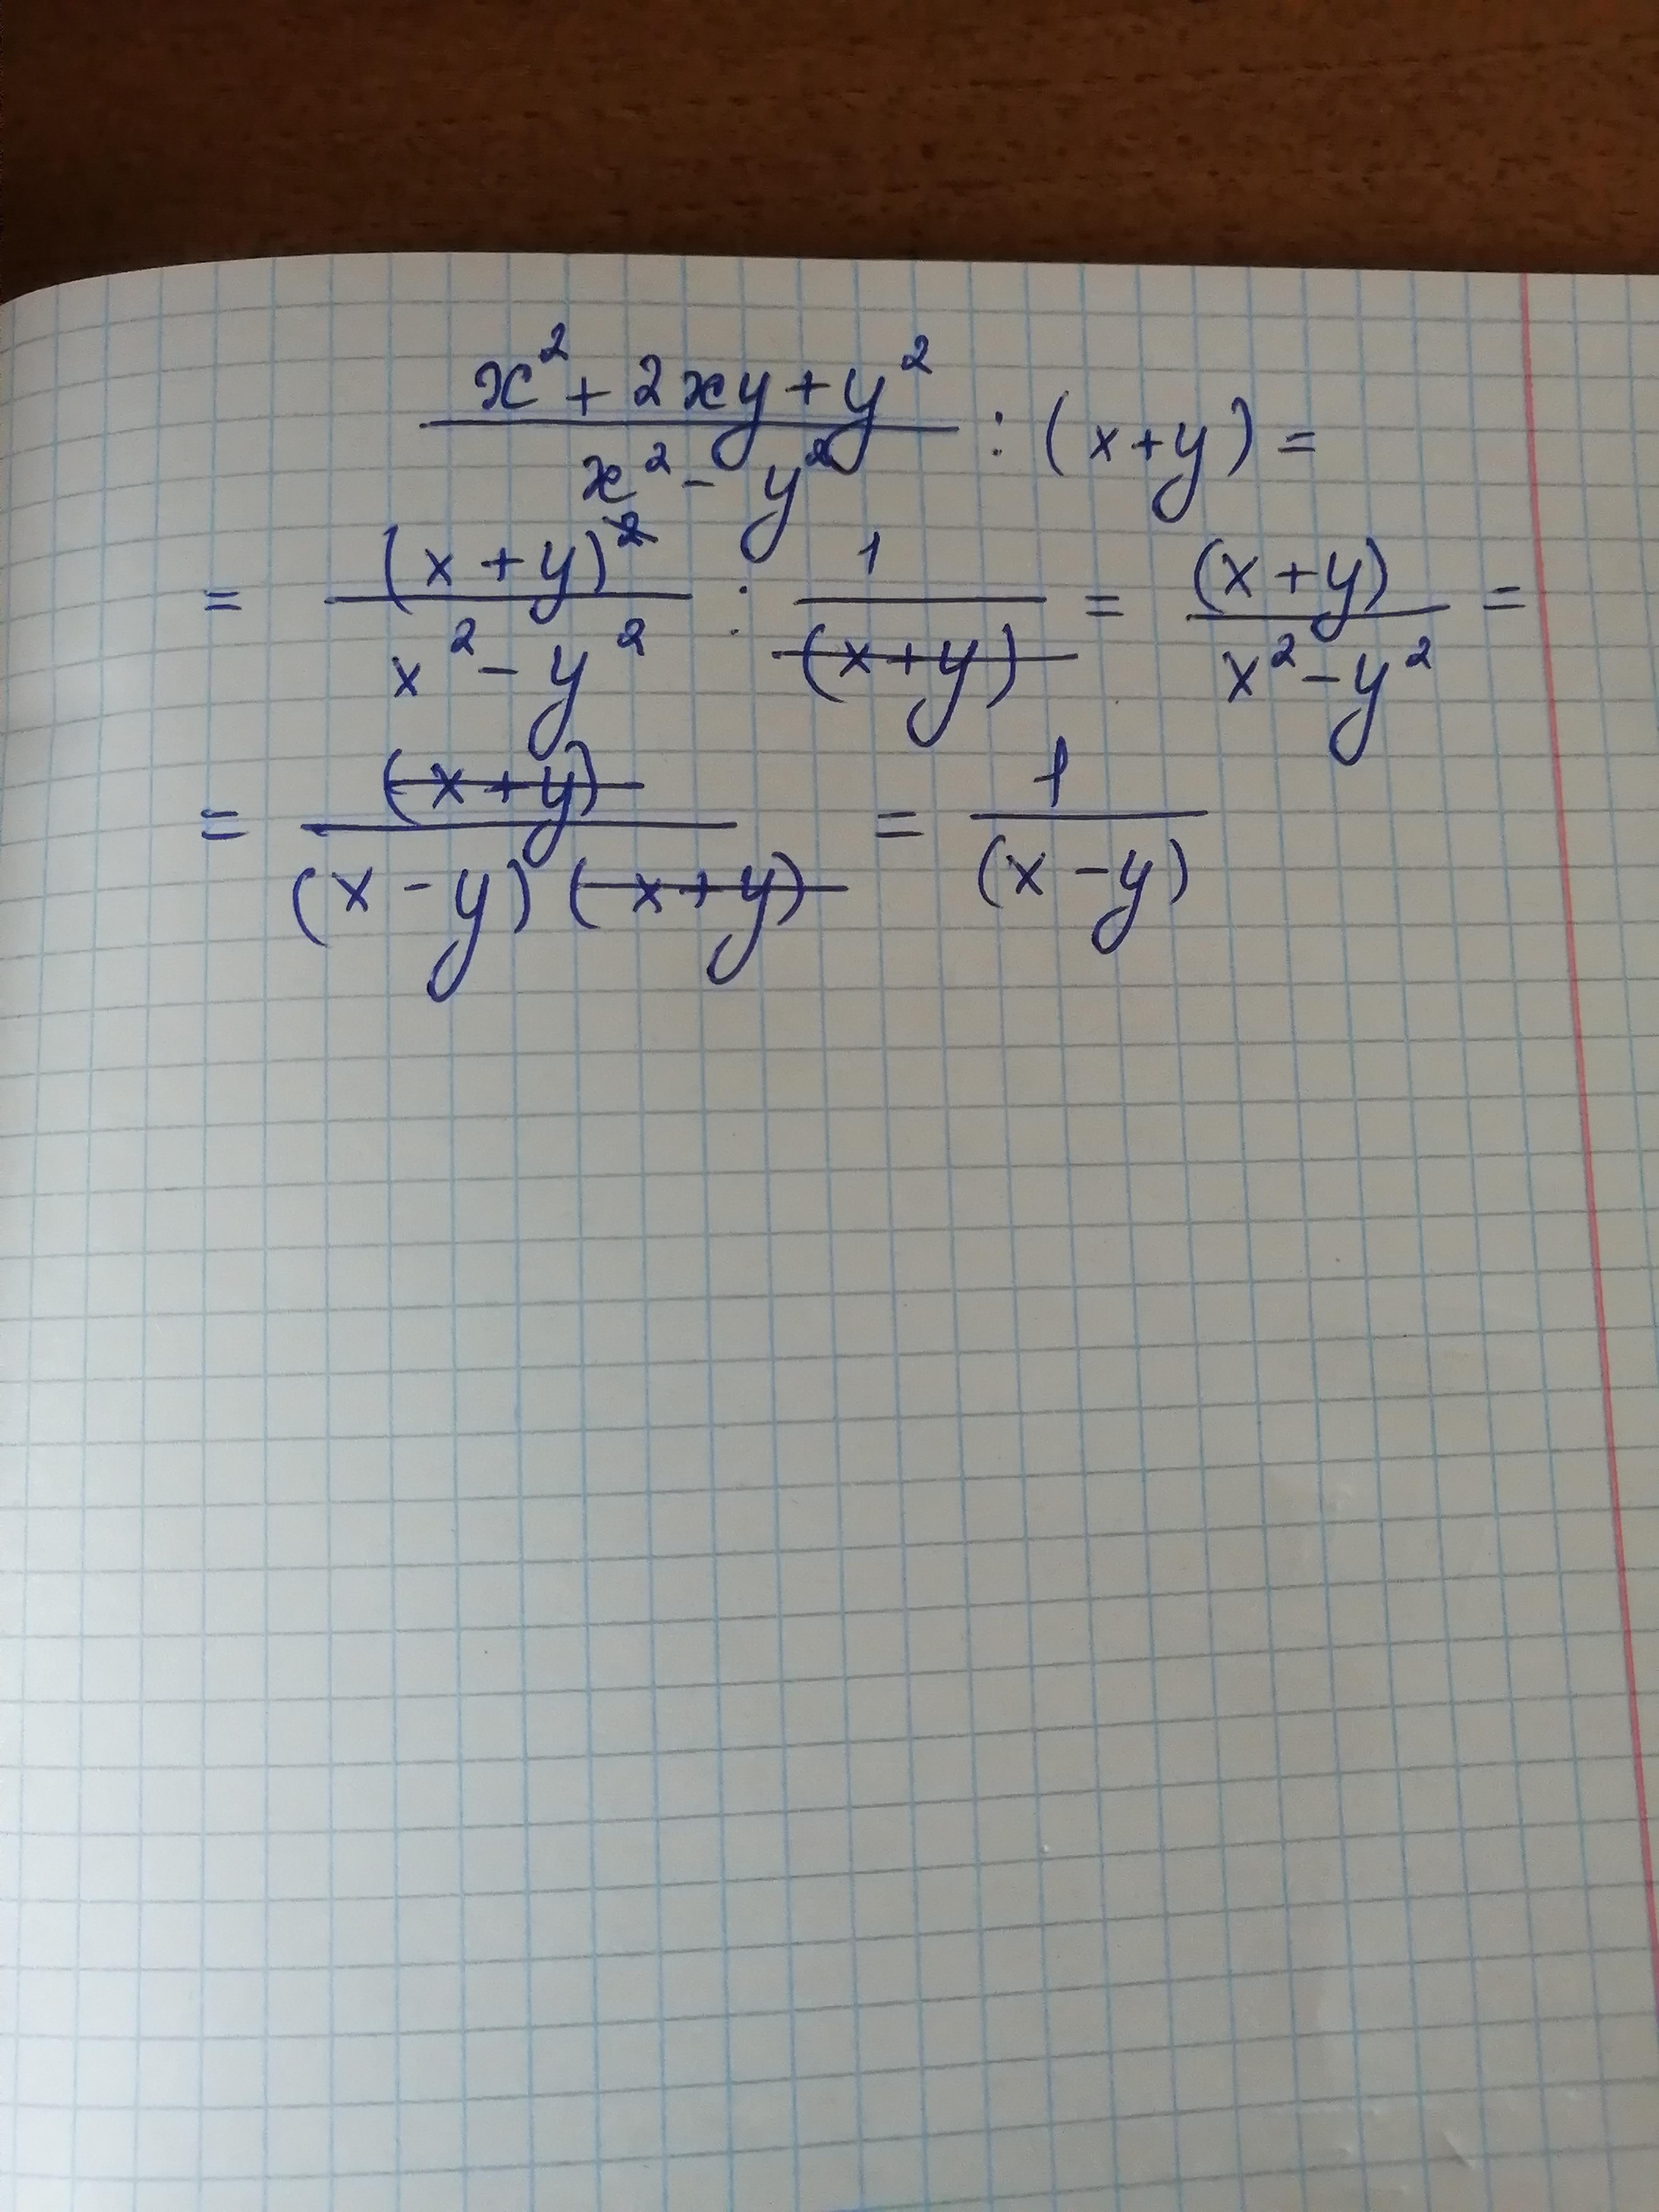 x² + 2xy + y² / x² - y² : (x+y) =
= (x+y)² / x² - y² : 1 / (x+y) = (x+y) / x² - y² =
= (x+y) / (x-y)(x+y) = 1 / (x-y)